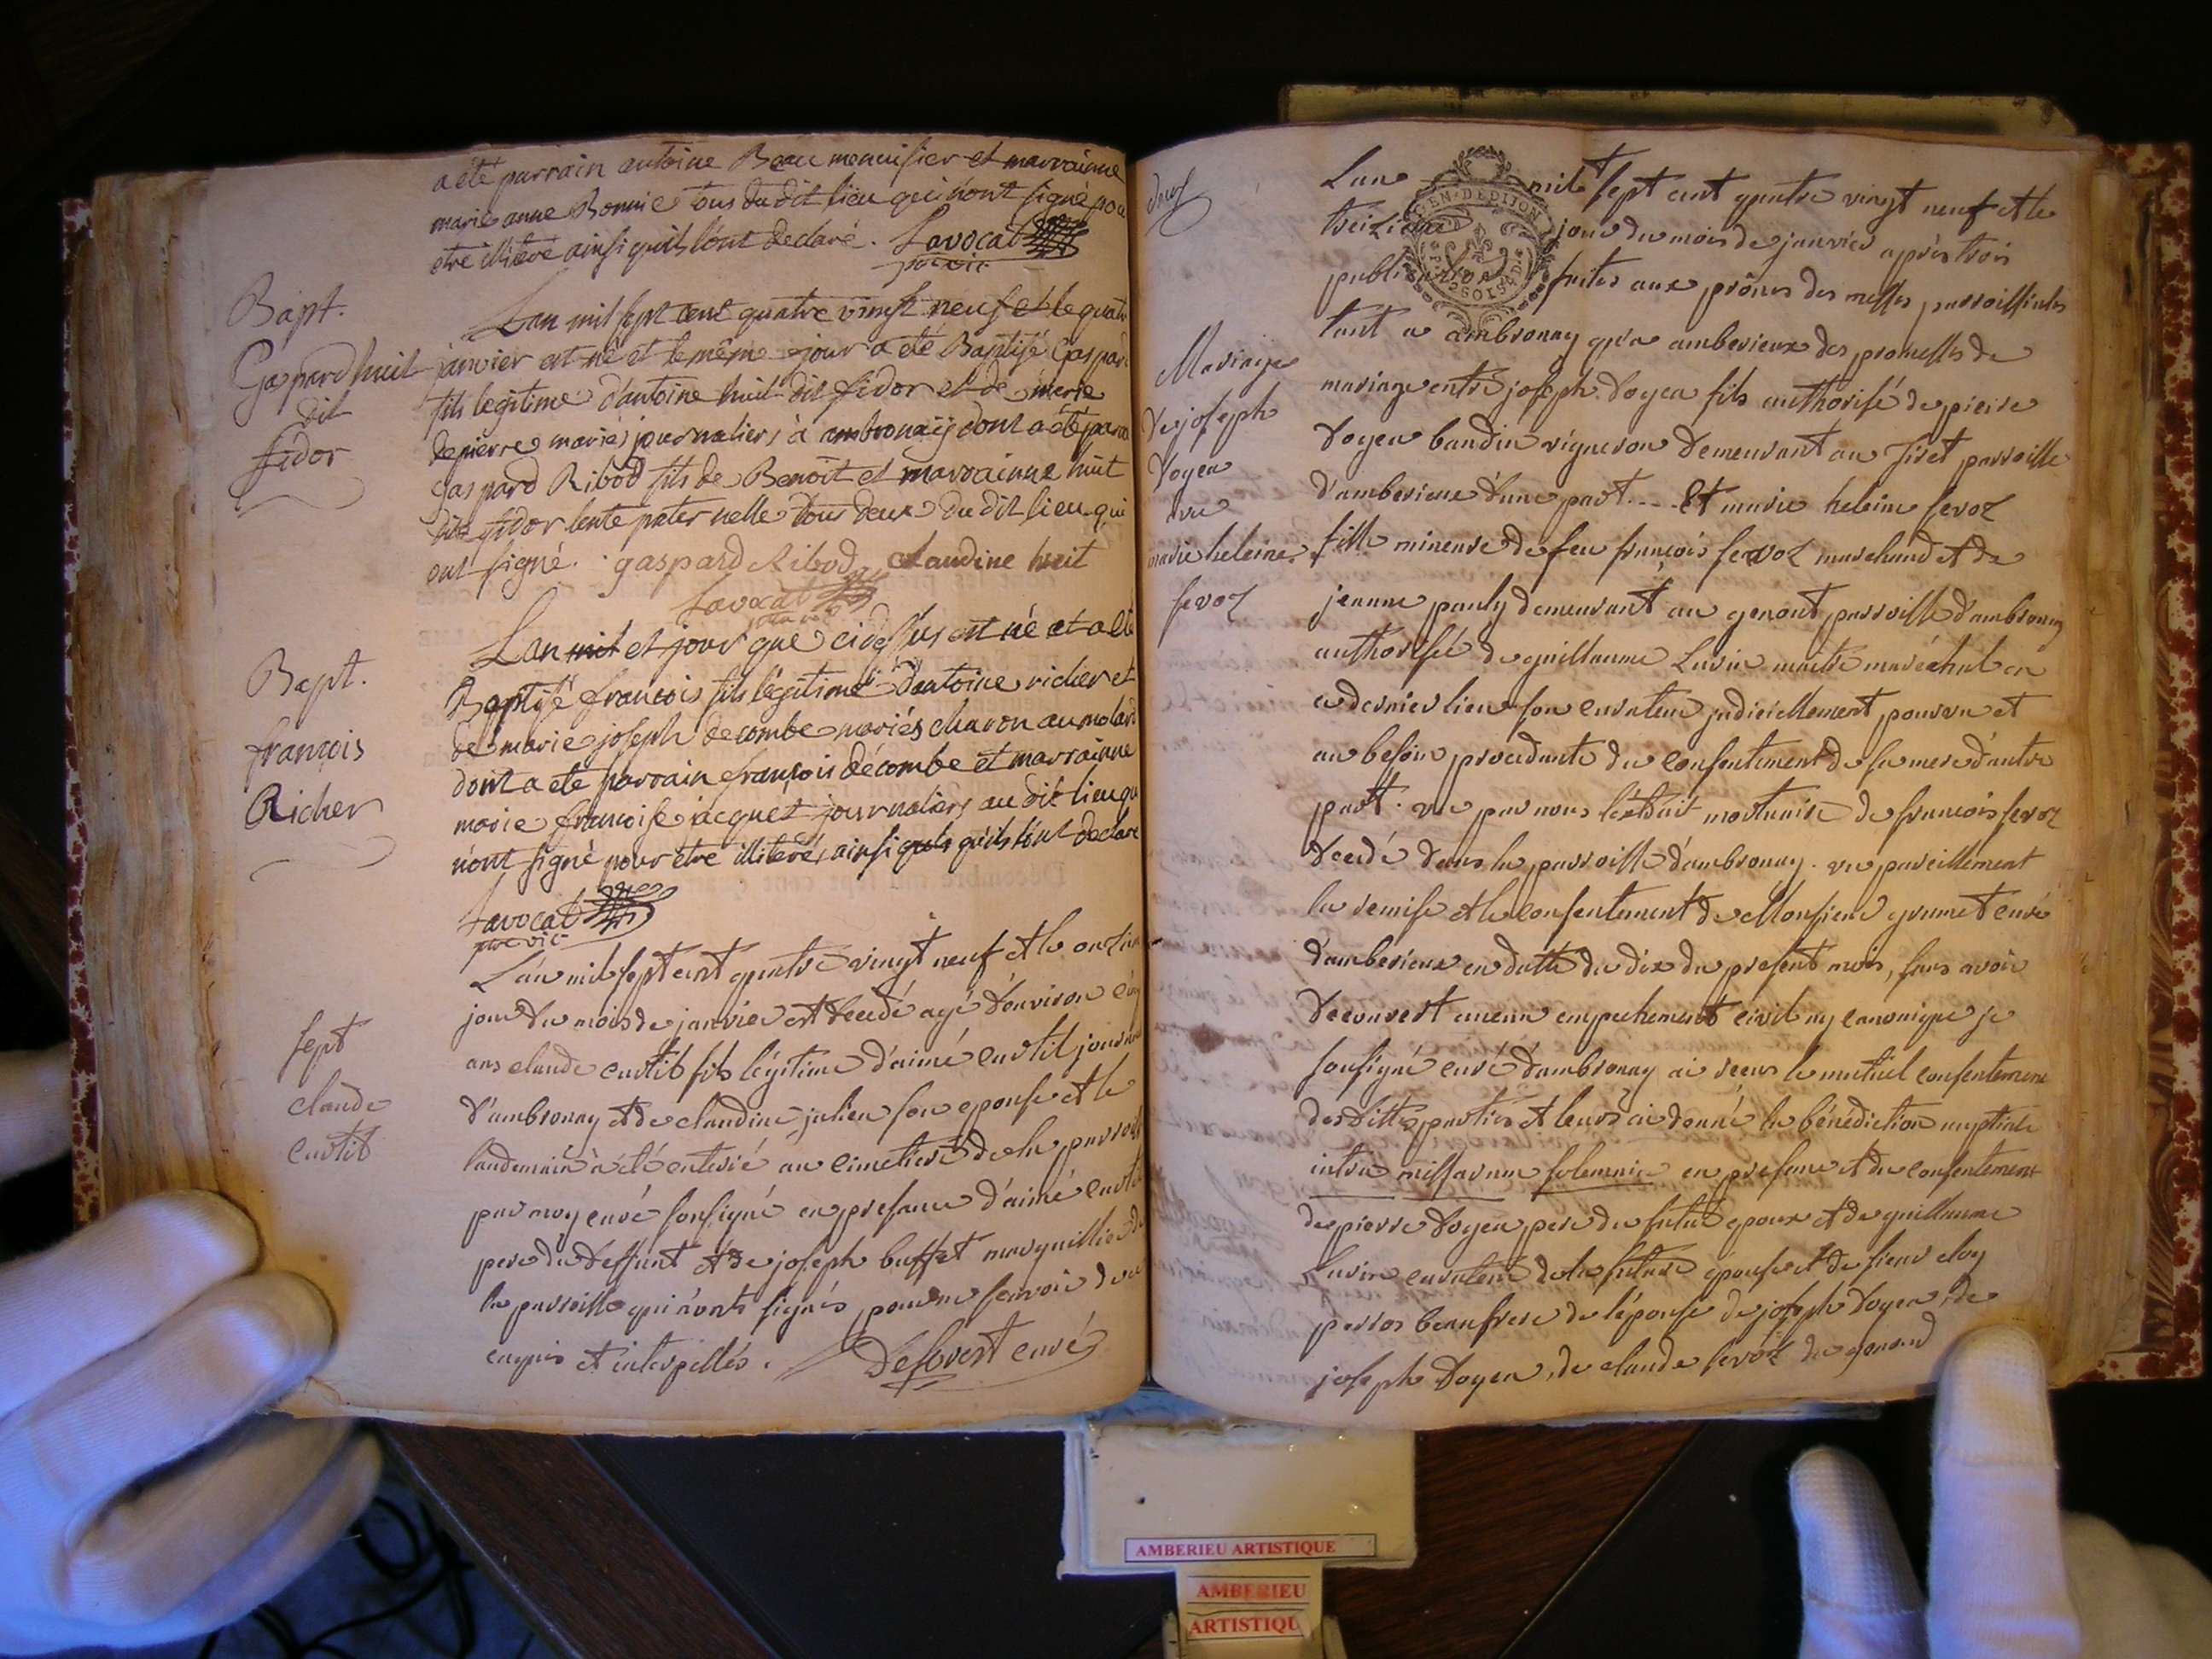 a été parrain antoine Beau menuisier et marraine
marie anne Bonnie tous du dit lieu qui n'ont signé pou
etre illiteré ainsi quils l'ont declaré. Lavocat
pro vic
Bapt.
Gaspard huit
dit
fidor
Lan mil sept cent quatre vingt neuf et le quatr
janvier est né et le même jour a été Baptisé Gaspar
fils legitime d'antoine huit dit fidor et de marie
depierre mariés journaliers à ambronaÿ dont a été parra
gaspard Ribod fils de Benoit et marrainne huit
dit fidor tente paternelle tous deux du dit lieu qui
ont signé. gaspard Ribod claudine huit
Lavocat
Bapt.
françois
Richer
Lan mil et jour que cidessus est né et a été
Baptisé françois fils légitime d'antoine richer et
de marie joseph decombe mariés charon au molard
dont a été parrain françois décombe et marrainne
marie françoise jacquet journaliers au dit lieu qu
n'ont signé pour être illiterés ainsi quils l'ont declaré
Lavocat
pro vic
sept
claude
curtit
L'an mil sept cent quatre vingt neuf et le onzièm
jour du mois de janvier est decedé agé d'environ cinq
ans claude curtit fils légitime d'aimé curtil journa
d'ambronay et de claudine julien son epouse et le
landemain a été enterré au cimetiere de la parroiss
par moy curé soussigné en presence d'aimé curti
pere du deffunt et de joseph buffet marguillier de
la parroisse qui n'ont signés pour ne scavoir de ce
enquis et interpellés. Deforest curé
deux
Mariage
de joseph
doyen
avec
marie heleine
fevoz
L'an mil sept cent quatre vingt neuf et le
treizieme jour du mois de janvier après trois
publications faites aux prônes des messes parroissiales
tant a ambronay qu'a amberieux des promesses de
mariage entre joseph doyen fils authorisé de pierre
doyen baudin vigneron demeurant au Tiret parroisse
d'amberieux d'une part.... Et marie heleine fevoz
fille mineure de feu françois fevoz marchand et de
jeanne pauly demeurant au genout parroisse d'ambronay
authorisée de guillaume Luvin maitre maréchal en
ce dernier lieu son curateur judiciellement pourvu et
au besoin procedante du consentement de sa mere d'autre
part. vu par nous l'extrait mortuaire de françois fevoz
decedé dans la parroisse d'ambronay. vu pareillement
la remise et le consentement de Monsieur grumet curé
d'amberieux en datte du dix du present mois, sans avoir
decouvert aucun empechement civil ny canonique je
soussigné curé d'ambronay ai recu le mutuel consentement
desdittes parties et leurs ai donné la bénédiction nuptiale
intra missarum solemnia en presence et du consentement
de pierre doyen pere du futur epoux et de guillaume
Luvin curateur de la future épouse et de sieur eloy
perros beaufrere de l'épouse de joseph doyen, de
joseph doyen, de claude fevoz du genoud
GEN. DE DIJON
AMBERIEU ARTISTIQUE
AMBERIEU
ARTISTIQU